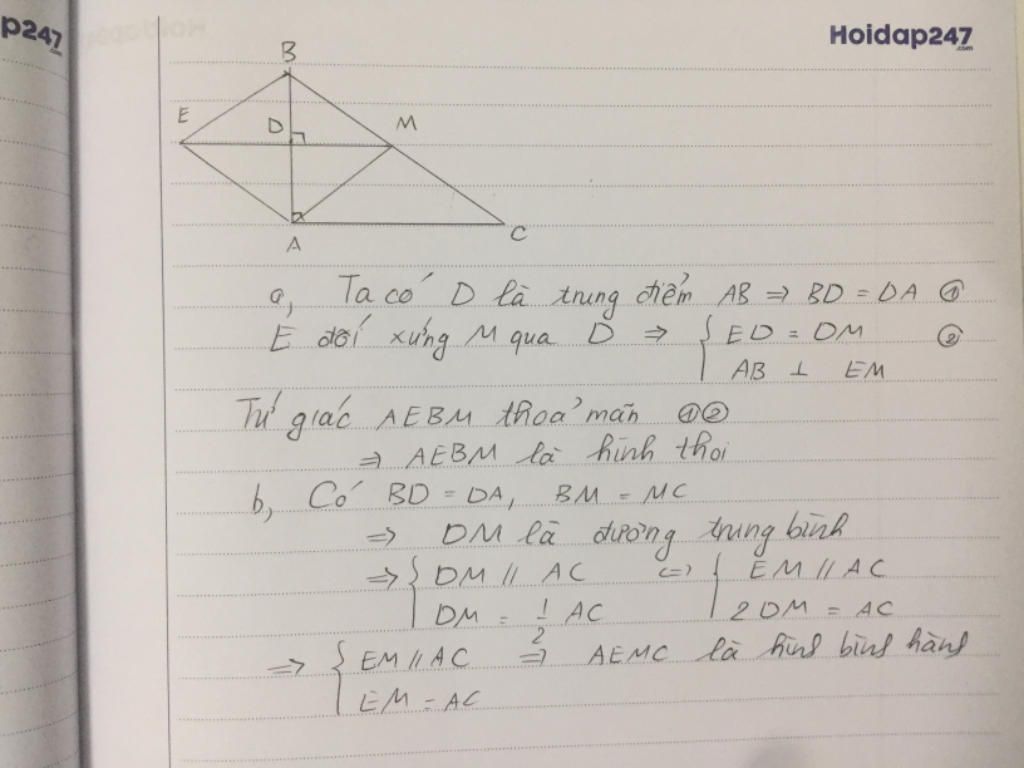 p247
.com
Hoidap247
.com
B
E
D
M
A
C
a, Ta có D là trung điểm AB ⇒ BD = DA ①
E đối xứng M qua D ⇒ { ED = DM ②
AB ⊥ EM
Tứ giác AEBM thoả mãn ①②
⇒ AEBM là hình thoi
b, Có BD = DA, BM = MC
⇒ DM là đường trung bình
⇒ { DM // AC ⇔ { EM // AC
DM = 1/2 AC 2DM = AC
⇒ { EM // AC ⇒ AEMC là hình bình hành
EM = AC